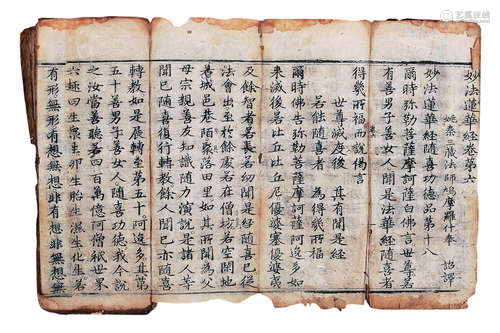 妙法蓮華經卷第六
姚秦三藏法師鳩摩羅什奉 詔譯
妙法蓮華經隨喜功德品第十八
爾時弥勒菩薩摩訶薩白佛言世尊若
有善男子善女人聞是法華經隨喜者
得幾所福而說偈言
世尊滅度後 其有聞是經
若能隨喜者 為得幾所福
爾時佛告弥勒菩薩摩訶薩阿逸多如
來滅後若比丘比丘尼優婆塞優婆夷
及餘智者若長若幼聞是經隨喜已從
法會出至於餘處若在僧坊若空閑地
若城邑巷陌聚落田里如其所聞為父
母宗親善友知識隨力演說是諸人等
聞已隨喜復行轉教餘人聞已亦隨喜
轉教如是展轉至第五十阿逸多其第
五十善男子善女人隨喜功德我今說
之汝當善聽若四百萬億阿僧祇世界
六趣四生眾生卵生胎生濕生化生若
有形無形有想無想非有想非無想無